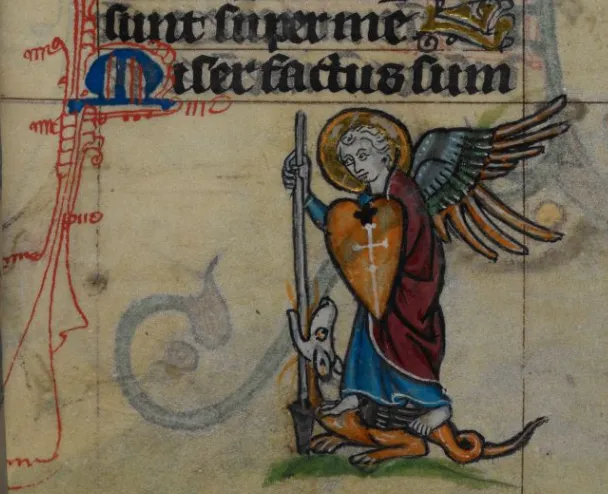 sunt super me
Miser factus sum